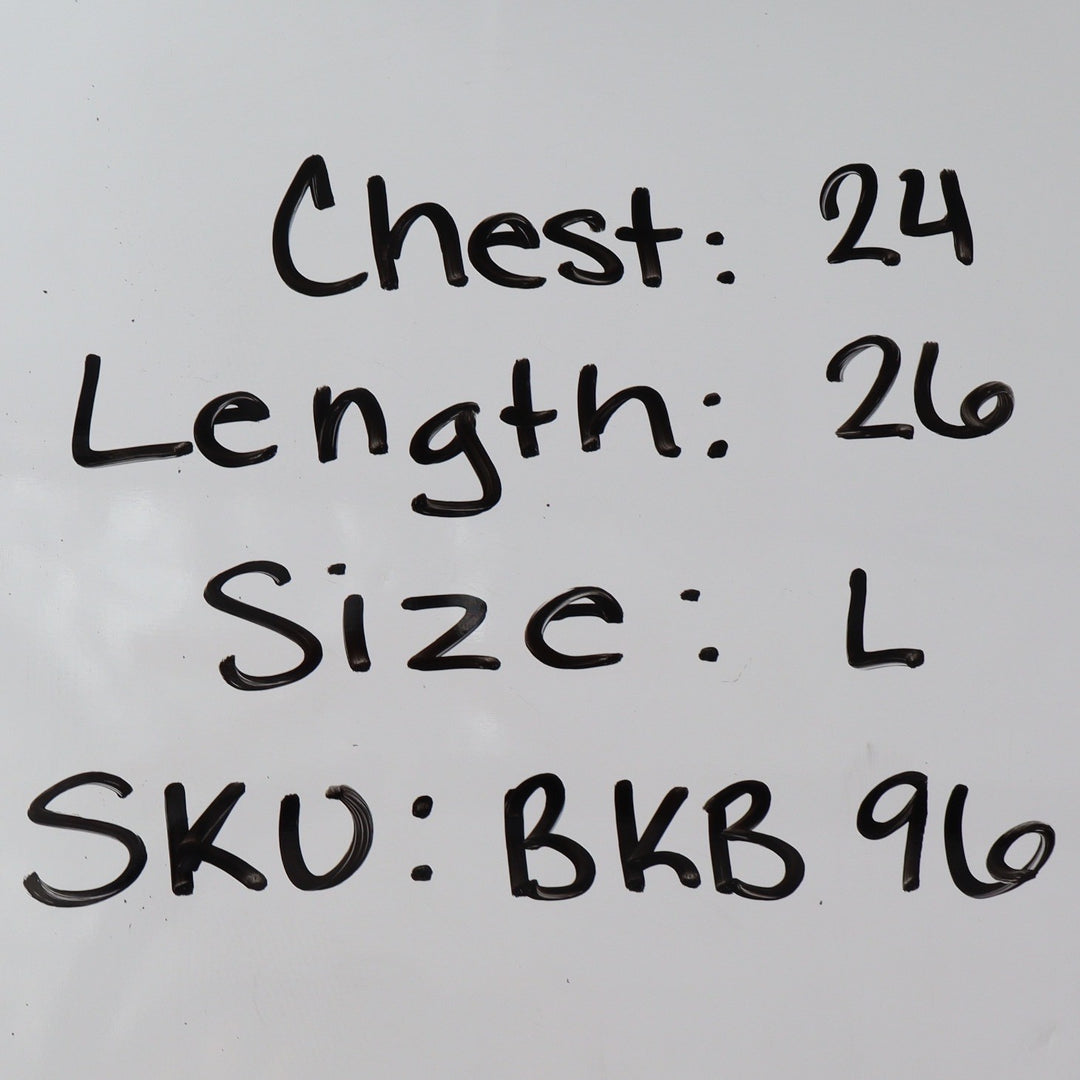 Chest: 24
Length: 26
Size: L
SKU: BKB 96